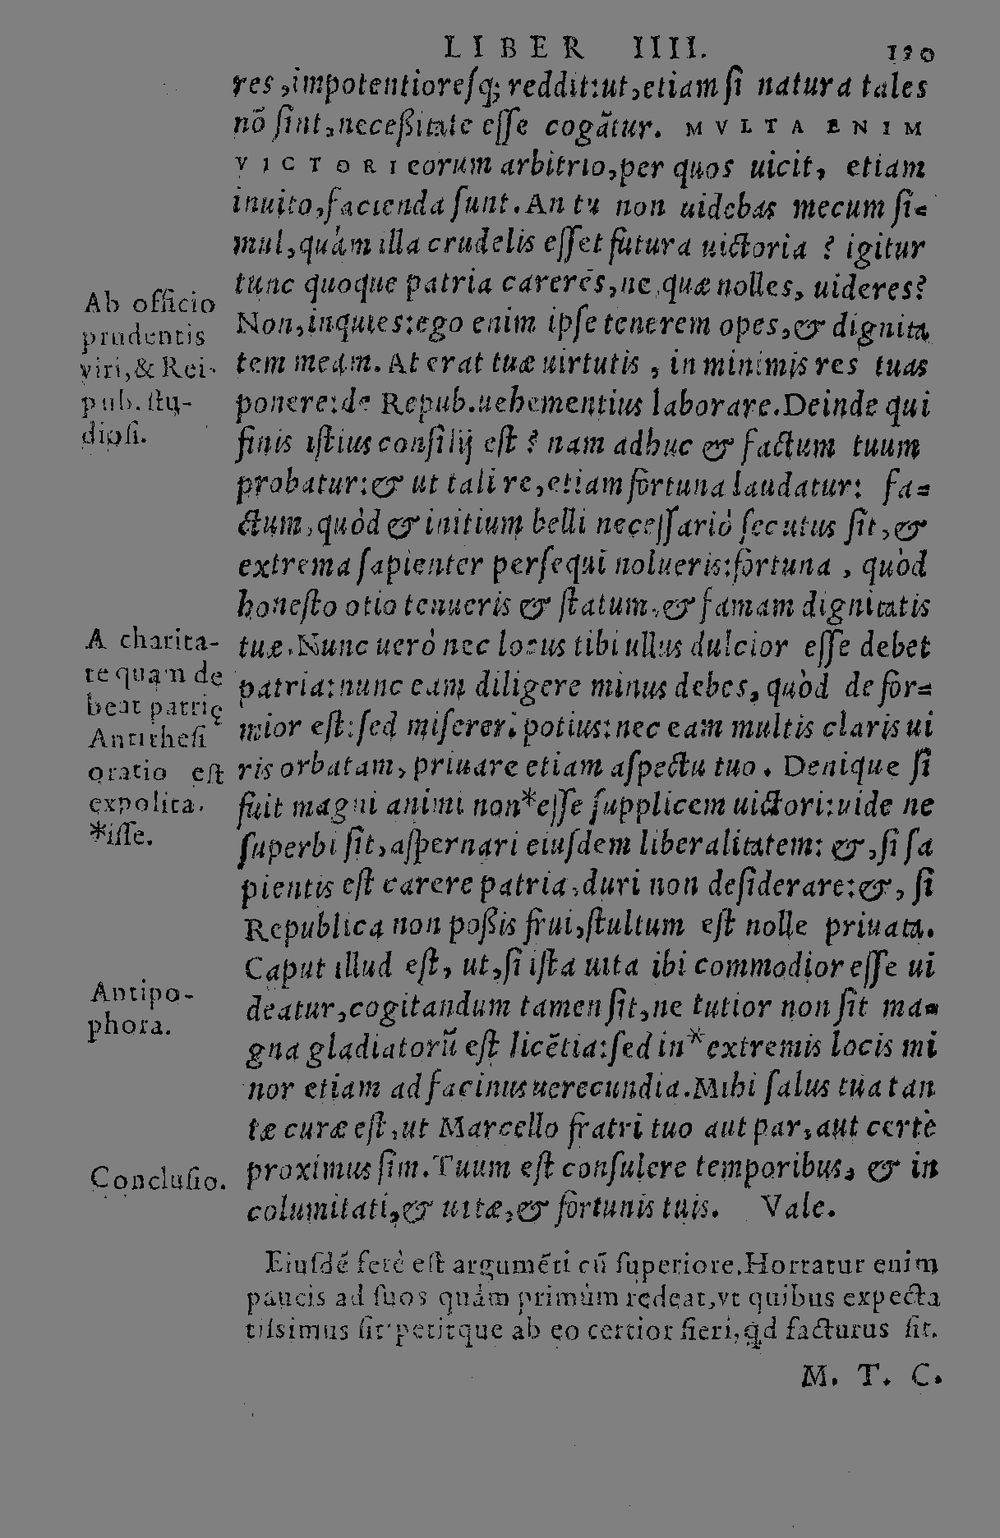 LIBER IIII. 130
res, impotentioresq; reddit: ut, etiam si natura tales
nō sint, necessitate esse cogātur. MVLTA ENIM
VICTORI eorum arbitrio, per quos uicit, etiam
inuito, facienda sunt. An tu non uidebas mecum si=
mul, quàm illa crudelis esset futura uictoria? igitur
tunc quoque patria carerēs, ne, quæ nolles, uideres?
Ab officio
prudentis
viri, & Rei-
pub. stu-
diosi.
Non, inquies: ego enim ipse tenerem opes, & dignita
tem meam. At erat tuæ uirtutis, in minimis res tuas
ponere: de Repub. uehementius laborare. Deinde qui
finis istius consilij est? nam adhuc & factum tuum
probatur: & ut tali re, etiam fortuna laudatur: fa=
ctum, quòd & initium belli necessariò secutus sit, &
extrema sapienter persequi nolueris: fortuna, quòd
honesto otio tenueris & statum, & famam dignitatis
A charita-
te quam de
beat patrię
Antithesi
oratio est
expolita.
*isse.
tuæ. Nunc uerò nec locus tibi ullus dulcior esse debet
patria: nunc eam diligere minus debes, quòd de for=
mior est: sed misereri potius: nec eam multis claris ui
ris orbatam, priuare etiam aspectu tuo. Denique si
fuit magni animi non*esse supplicem uictori: uide ne
superbi sit, aspernari eiusdem liberalitatem: &, si sa
pientis est carere patria, duri non desiderare: &, si
Republica non possis frui, stultum est nolle priuata.
Caput illud est, ut, si ista uita ibi commodior esse ui
Antipo-
phora.
deatur, cogitandum tamen sit, ne tutior non sit ma=
gna gladiatorū est licētia: sed in*extremis locis mi
nor etiam ad facinus uerecundia. Mihi salus tua tan
tæ curæ est, ut Marcello fratri tuo aut par, aut certè
Conclusio.
proximus sim. Tuum est consulere temporibus, & in
columitati, & uitæ, & fortunis tuis. Vale.
Eiusdē ferè est argumēti cū superiore. Hortatur enim
paucis ad suos quàm primùm redeat, vt quibus expecta
tissimus sit petitque ab eo certior fieri, qd facturus sit.
M. T. C.